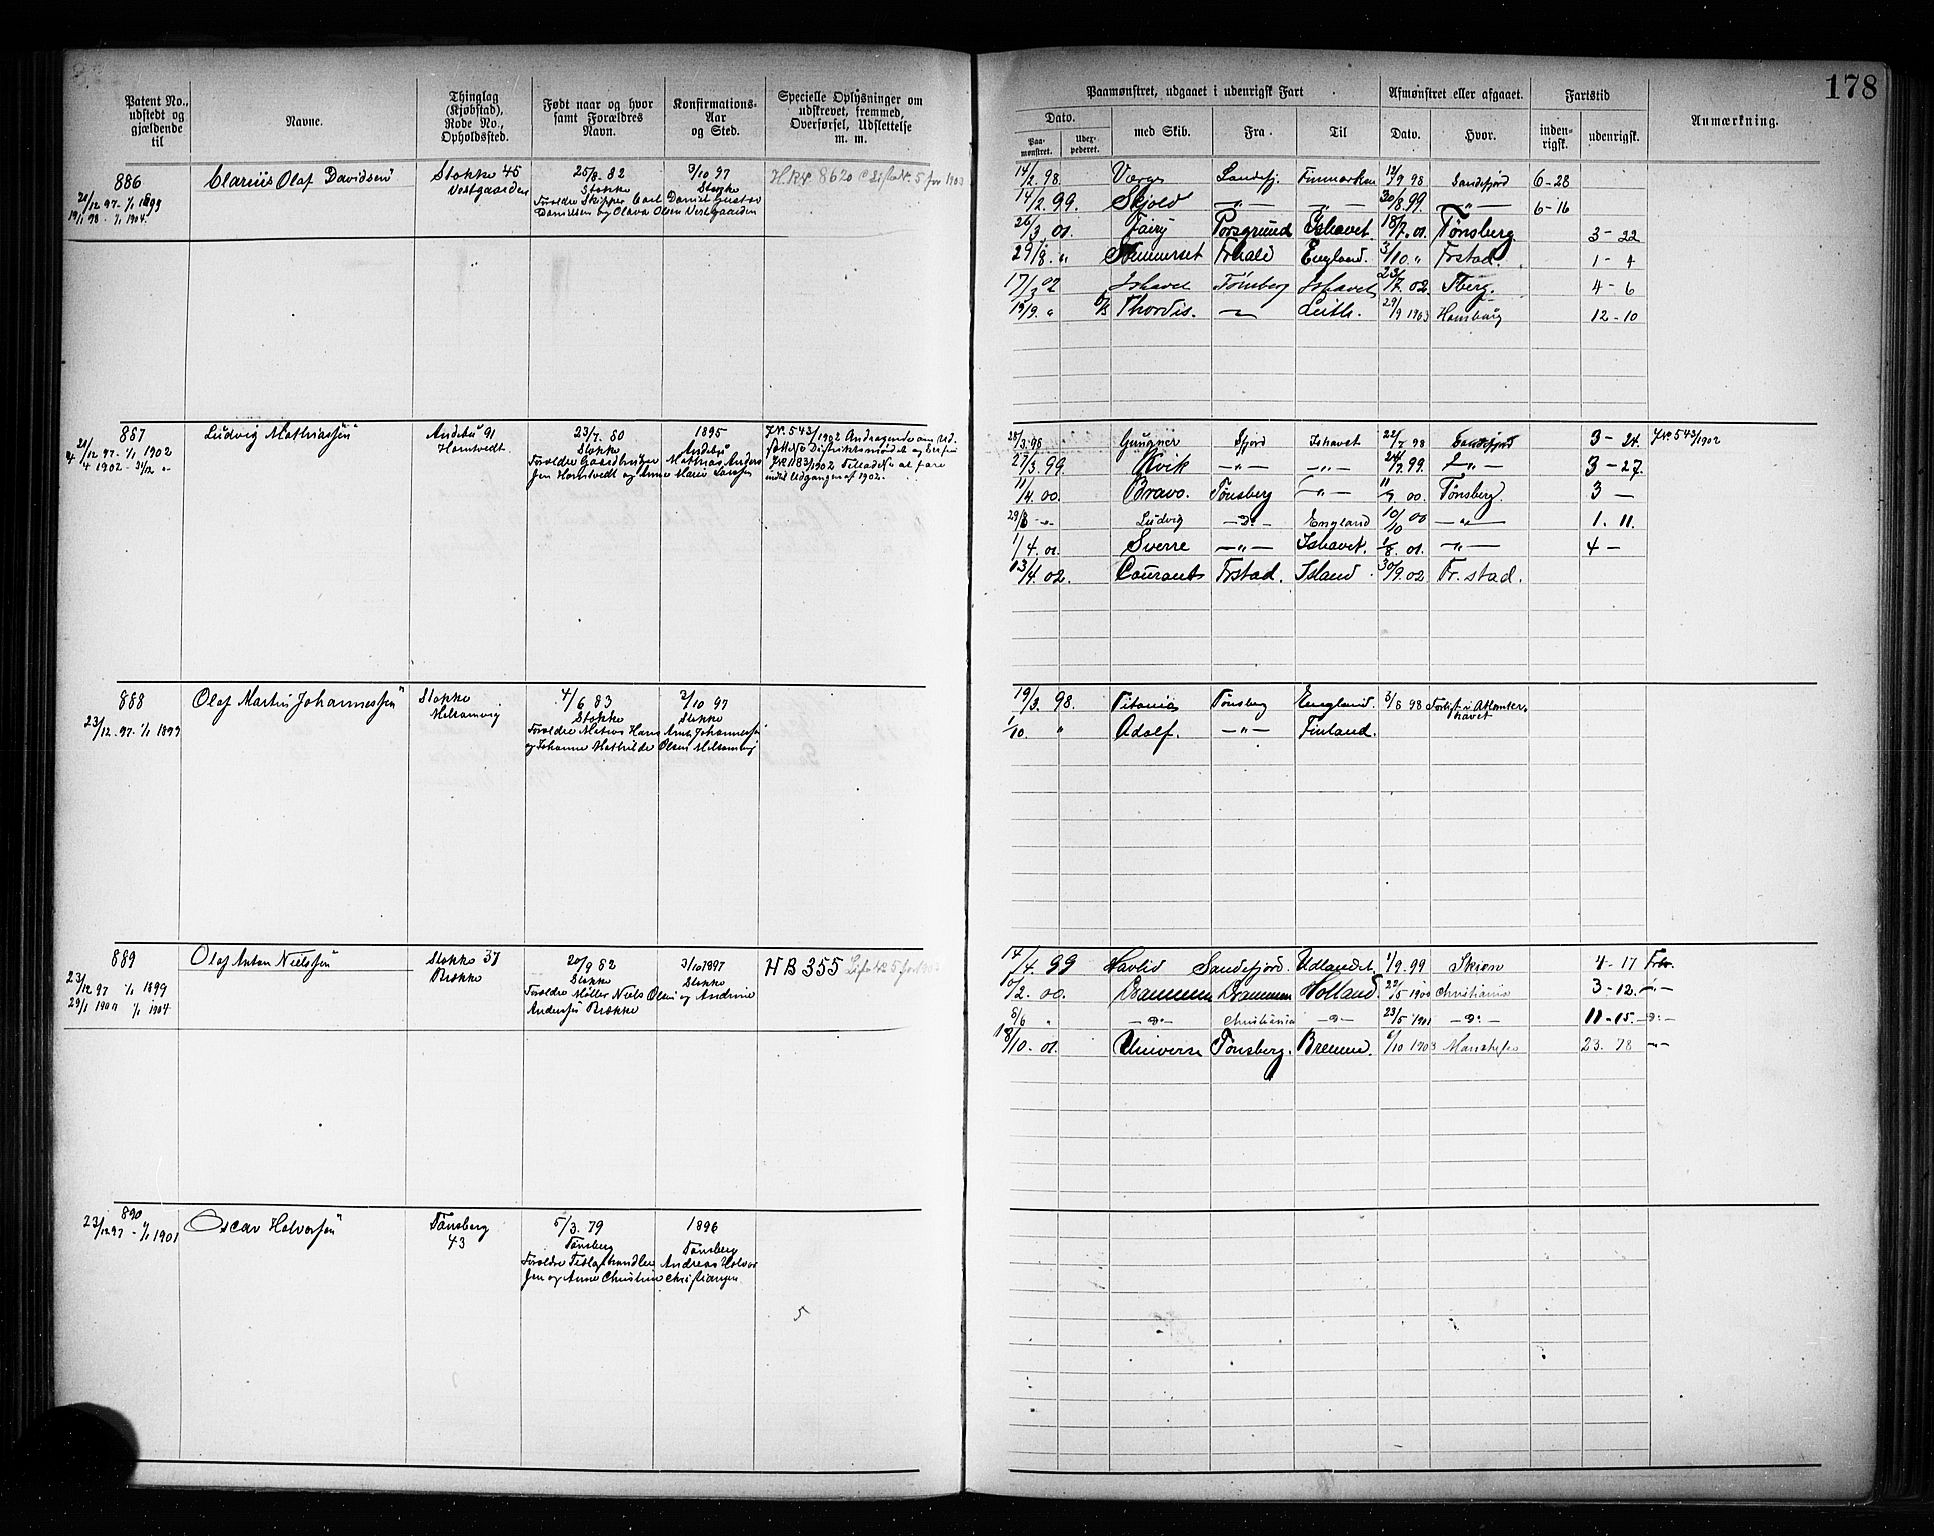 178
Patent No., udstedt og gjældende til
Navne.
Thinglag (Kjøbstad), Rode No., Opholdssted.
Født naar og hvor samt Forældres Navn.
Konfirmations-Aar og Sted.
Specielle Oplysninger om udskrevet, fremmed, Overførsel, Udslettelse m. m.
Paamønstret, udgaaet i udenrigsk Fart
Dato.
Paa-mønstret.
Udex-pederet.
med Skib.
Fra
Til
Afmønstret eller afgaaet.
Dato.
Hvor.
Fartstid
inden-rigsk.
udenrigsk.
Anmærkning.
886
21/12 97 - 1/1 1899
19/1 98 - 1/1 1904
Clarius Olaf Davidsen
Stokke 45
Vestgaarden
25/8. 82
Stokke
3/10 97
Stokke
Forældre Skipper Carl Daniel Gustav
Danielsen og Olava Olsen Vestgaarden
H.R.No. 8620
14/2 98. Værge Sandefj. Finmarken 12/9 98 Sandefjord 6-28
14/2. 99. Skjold -„- -„- 30/8.99. -„- 6-16
26/3 01. Fairy Porsgrund Ishavet 18/7. 01. Tønsberg 3-22
29/8. „ Sommerset Frhald England. 3/10. „ Frstad. 1-4
17/3 02 Ishavet Tønsberg Ishavet 23/7. 02. Tberg. 4-6
19/9. „ D/S Thordis. Leith. 29/9 1903 Hamburg 12-10
887
21/12 97. - 1/1 1902
4/4 1902 - 31/12 „
Ludvig Mathiassen
Andebu 91
Horntvedt
23/7. 80
Stokke
1895
Andebu
Forældre Gaardbruger Mathias Anders
sen Horntvedt og Anne Marie Larsen
J.No. 543/1902 Andragende om Ud.
J.No. 1183/1902 Tilladelse at fare
indtil Udgangen af 1902.
28/3.98 Gungner Sfjord Ishavet 22/7 98 Sandefjord 3-24. J.No. 543/1902
27/3 99. Kvik -„- -„- 24/7.99. -„- 3-27.
11/4. 00. Bravo. Tønsberg -„- 11/7. 00. Tønsberg. 3 -
29/8 -„- Ludvig -D:- England 10/10 00 -„- 1. 11.
1/4. 01. Sverre -„- Ishavet. 1/8. 01. -„- 4 -
13/4. 02. Courant Frstad. Island 30/9. 02 Fr. stad.
888
23/12. 97. 1/1 1899
Olaf Martin Johannessen
Stokke
Melsomvig
4/6 83
Stokke
3/10 97
Stokke
Forældre Matros Hans Anth. Johannessen
og Johanne Mathilde Olsen Melsomvig
19/3. 98. Titania Tønsberg England. 3/6 98 Forlist i Atlanter-
havet
1/10. „ Adolf. -„- Finland.
889
23/12 97 1/1 1899
29/1 1901 1/1 1904
Olaf Anton Nielsen
Stokke 37
Brekke
20/9 82
Stokke
3/10 1897
Stokke
Forældre Møller Niels Olsen og Andrine
Andersen Brekke
H B 355
14/4. 99 Havlid Sandefjord. Udlandet. 1/9. 99 Skien 4-17
10/2. 00. Drammen Drammen Holland. 22/5 1900 Christiania 3-12. -„-
8/6 „ -D:- Christiania -D:- 23/5 1901 -D:- 11-15. -D:-
18/10. 01. Universe Tønsberg. Bremen. 6/10 1903 23. 78 -„-
890
23/12 97 - 1/1 1901
Oscar Halvorsen
Tønsberg
43
5/3. 79
Tønsberg
1896
Tønsberg
Forældre Andreas Halvor
sen og Anne Christine Christiansen
5